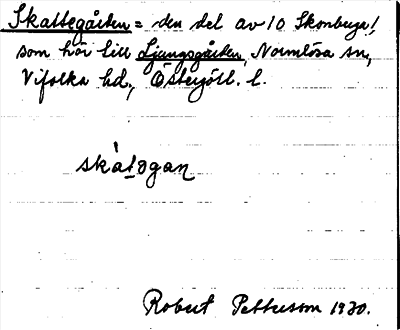 Skattegården = den del av 10 Skonberga!,
som hör till Ljungsgården, Normlösa sn,
Vifolka hd., Östergötl. l.
skàtogan
Robert Pettersson 1930.